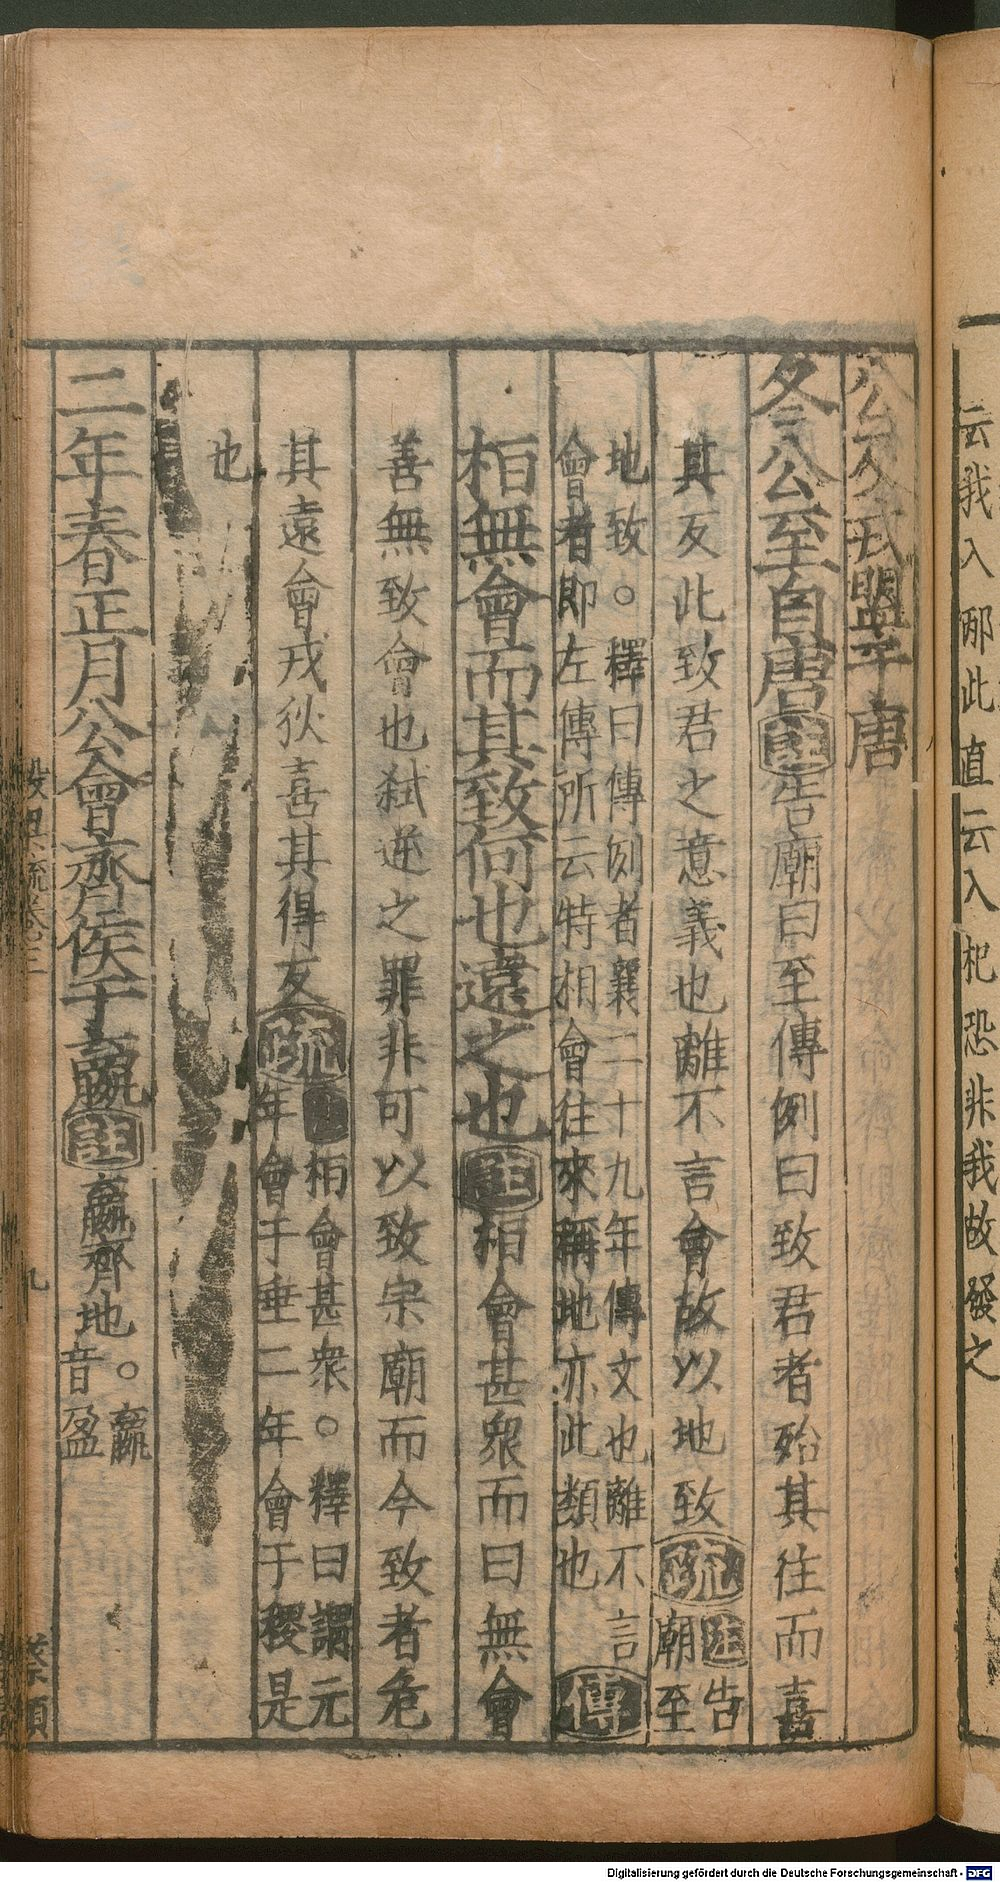 云我入邴此直云入杞恐非我故發之
公及戎盟于唐
冬公至自唐註告廟曰至傳例曰致君者殆其往而喜
其反此致君之意義也離不言會故以地致疏註告
廟至
地致○釋曰傳例者襄二十九年傳文也離不言
會者即左傳所云特相會往來稱地亦此類也傳
桓無會而其致何也遠之也註桓會甚衆而曰無會
善無致會也弑逆之罪非可以致宗廟而今致者危
其遠會戎狄喜其得反疏註桓會甚衆○釋曰謂元
年會于垂二年會于稷是
也
二年春正月公會齊侯于嬴註嬴齊地○嬴
音盈
九
Digitalisierung gefördert durch die Deutsche Forschungsgemeinschaft - DFG